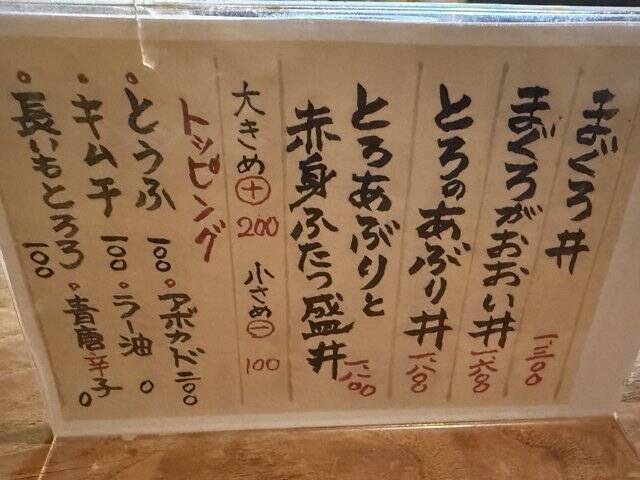 まぐろ丼 一、三〇〇
まぐろがおおい丼 一、六〇〇
とろのあぶり丼 一、八〇〇
とろあぶりと
赤身ふたつ盛丼 一、八〇〇
大きめ㊉200 小さめ㊀100
トッピング
・とうふ 一〇〇 ・アボカド 二〇〇
・キムチ 一〇〇 ・ラー油 0
・長いもとろろ 一〇〇 ・青唐辛子 0